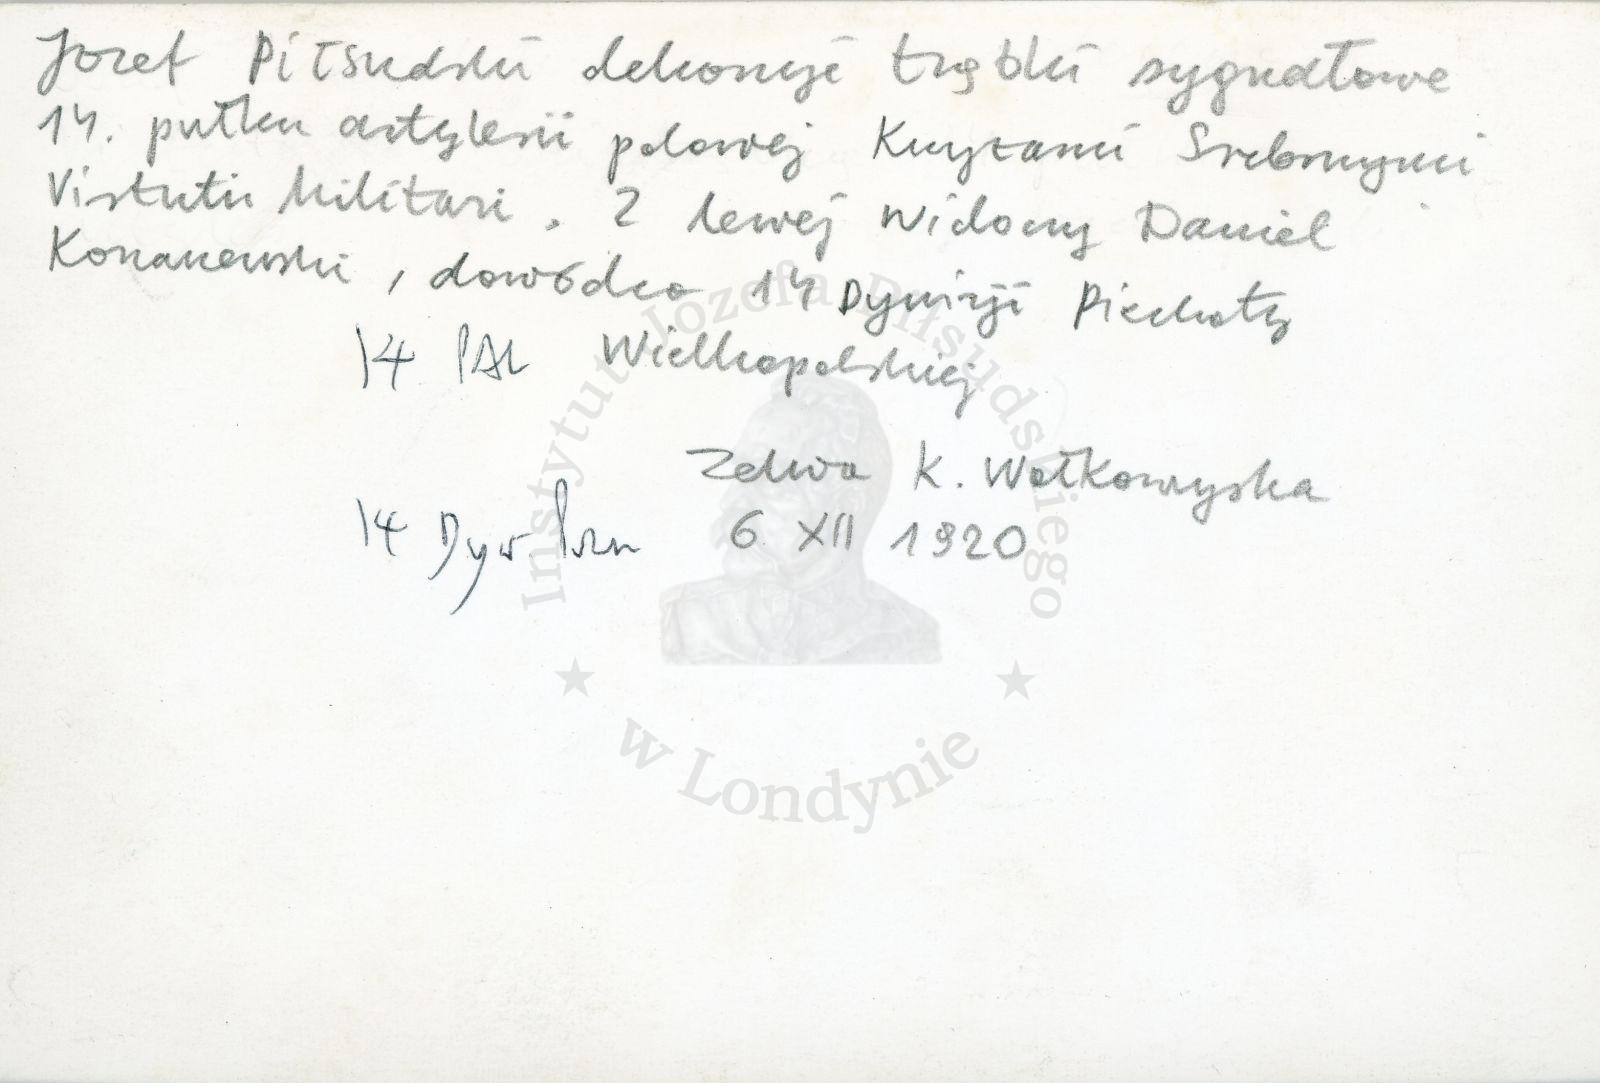 Jozef Piłsudski dekoruje trąbki sygnałowe
14. pułku artylerii polowej Krzyżami Srebrnymi
Virtuti Militari. Z lewej widoczny Daniel
Konarzewski, dowódca 14 Dywizji Piechoty
14 PAL Wielkopolskiej
Zelwa K. Wołkowyska
14 Dyw
6 XII 1920
Instytut Józefa Piłsudskiego
w Londynie